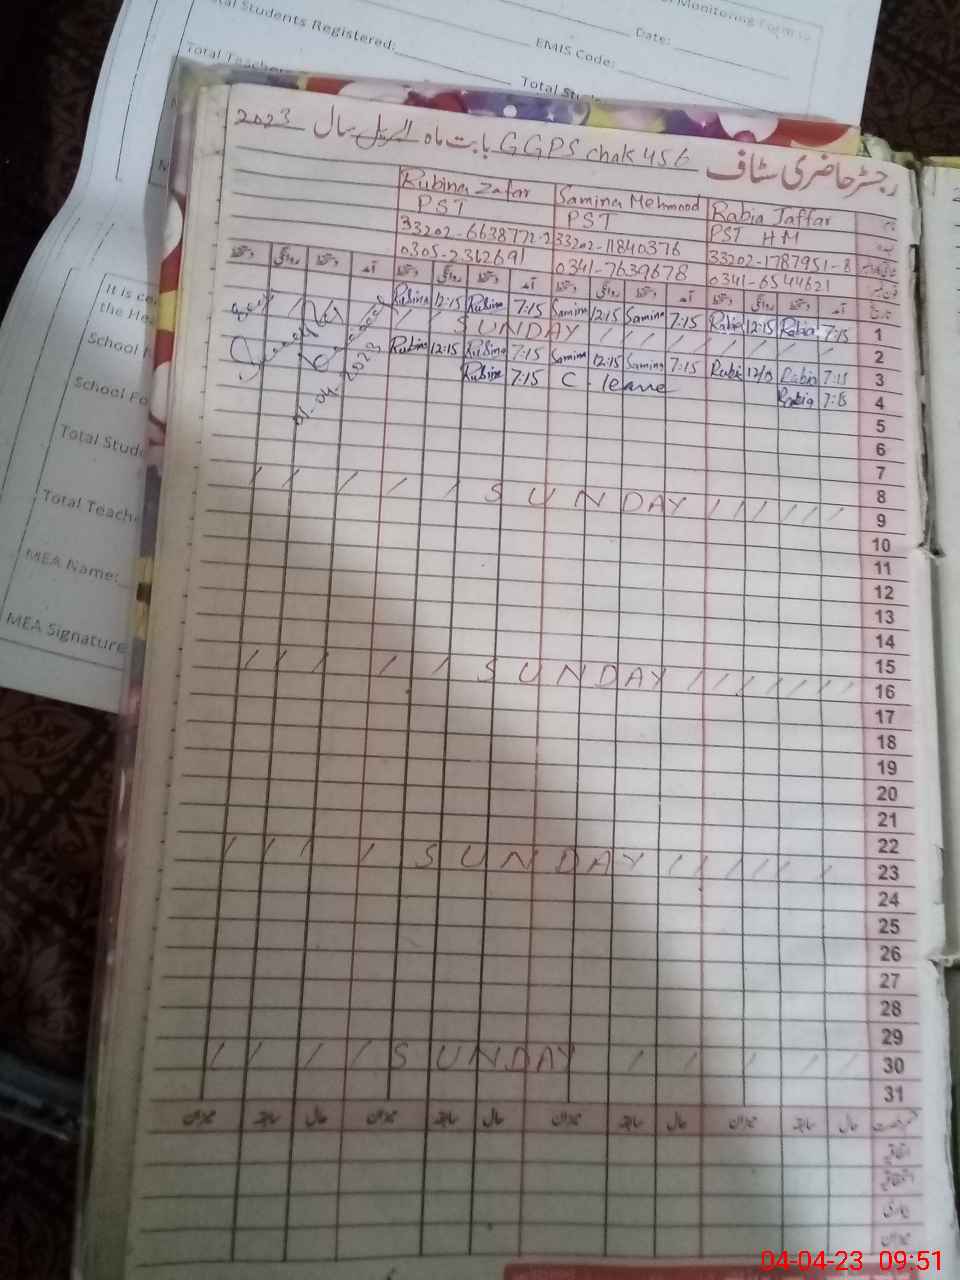 Monitoring Form
Date:
Total Students Registered:
EMIS Code:
Total Teachers
It is ce
the He
School
School Fo
Total Stud
Total Teach
MEA Name:
MEA Signature
رجسٹر حاضری سٹاف GGPS chak 456 بابت ماہ اپریل سال 2023
Rubina Zafar Samina Mehmood Rabia Jaffar نام
PST PST PST HM عہدہ
33202-6638772-2 33202-11840376 33202-1787951-8
0305-2342691 0341-7639678 0341-6544621
دستخط روانگی دستخط آمد دستخط روانگی دستخط آمد دستخط روانگی دستخط آمد دستخط روانگی دستخط آمد تاریخ
Rubina 12:15 Rubina 7:15 Samina 12:15 Samina 7:15 Rabia 12:15 Rabia 7:15 1
SUNDAY 2
Rubina 12:15 Rubina 7:15 Samina 12:15 Samina 7:15 Rabia 12:15 Rabia 7:15 3
Rubina 7:15 C leave Rabia 7:15 4
01-04-2023
5
6
7
8
SUNDAY 9
10
11
12
13
14
15
SUNDAY 16
17
18
19
20
21
22
SUNDAY 23
24
25
26
27
28
29
SUNDAY 30
31
میزان سابقہ حال میزان سابقہ حال میزان سابقہ حال میزان سابقہ حال
میزان
04-04-23 09:51